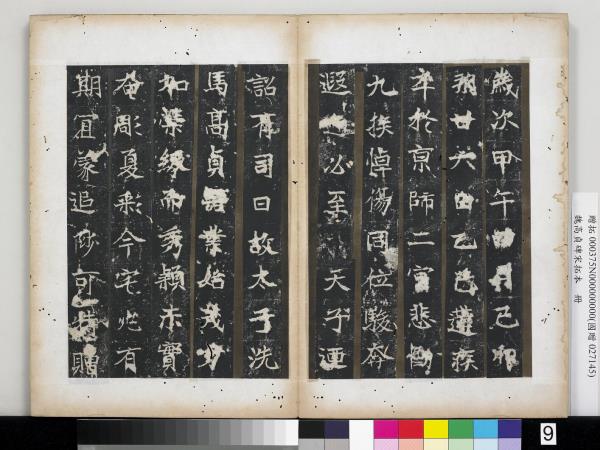 歲次甲午四月己卯
朔廿六日乙巳遘疾
卒於京師二宮悲慟
九族悼傷同位駿奔
遐迩必至天子迺
詔有司曰故太子洗
馬高貞器業始茂方
加榮級而秀穎未實
奄彫夏彩今宅兆有
期宜蒙追陟可特贈
贈拓 000375N000000000(國贈 027145)
魏高貞碑宋拓本 冊
9